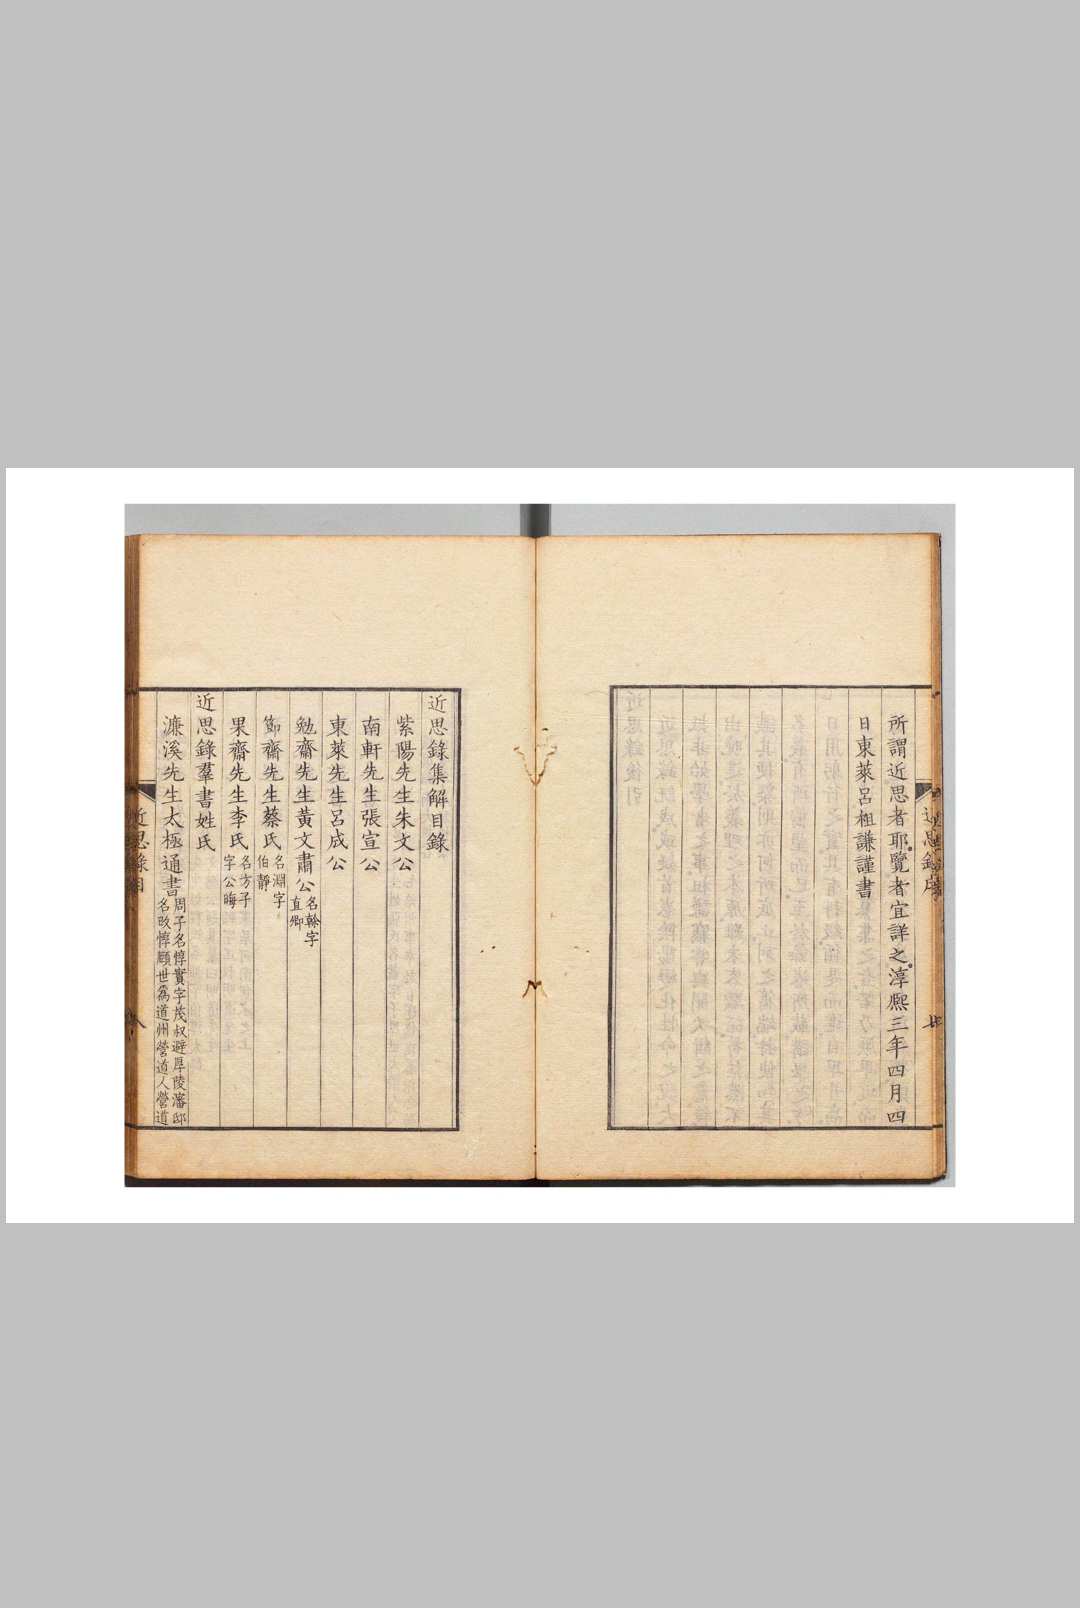 所謂近思者耶覽者宜詳之淳熈三年四月四
日東萊呂祖謙謹書
近思錄後引
近思錄集解目錄
紫陽先生朱文公
南軒先生張宣公
東萊先生呂成公
勉齋先生黃文肅公名榦字
直卿
節齋先生蔡氏名淵字
伯靜
果齋先生李氏名方子
字公晦
近思錄羣書姓氏
濂溪先生太極通書周子名惇實字茂叔避厚陵藩邸
名改惇頤世為道州營道人營道
近思錄目
八